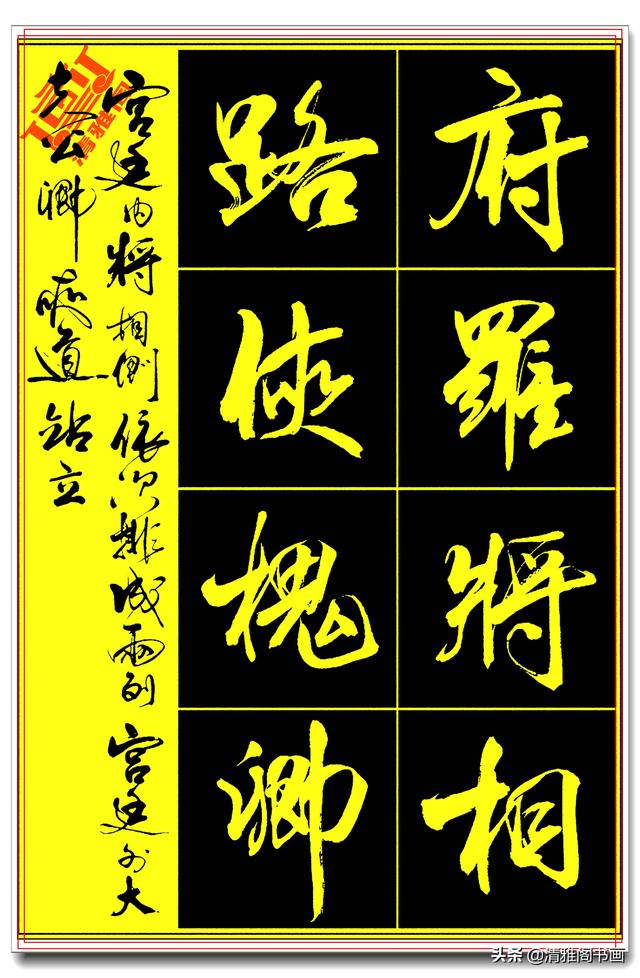 府羅將相
路俠槐卿
宫廷内將相依次排成兩列宫廷外大
夫公卿夾道站立
清雅阁
头条 @清雅阁书画